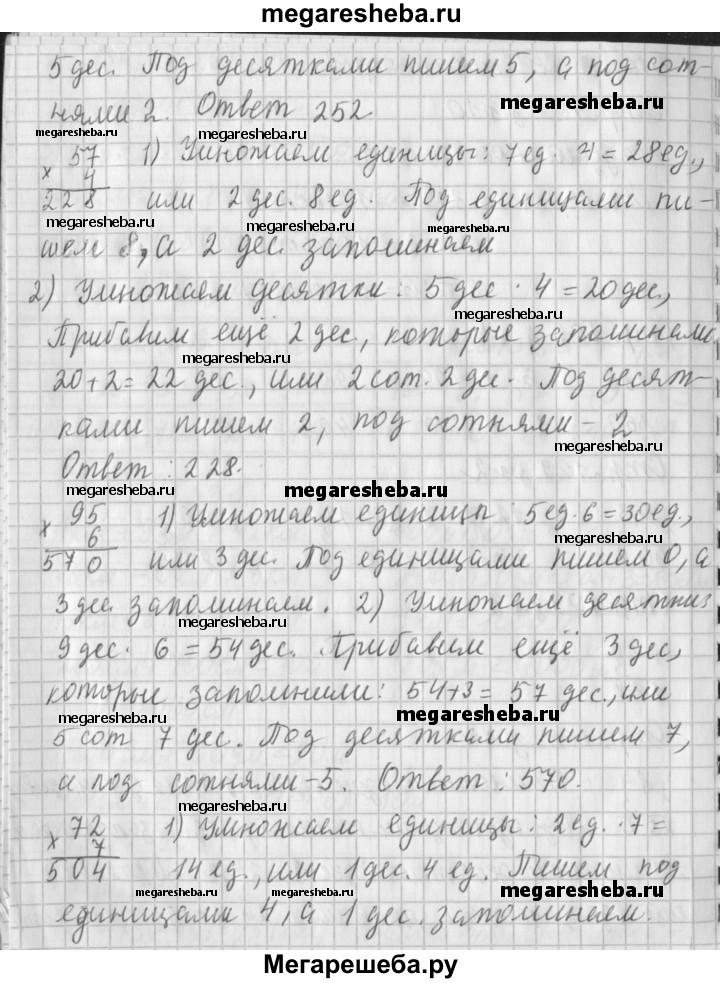 megaresheba.ru
5 дес. Под десятками пишем 5, а под сот-
megaresheba.ru
нями 2. Ответ 252.
megaresheba.ru megaresheba.ru
57 1) Умножаем единицы: 7 ед. · 4 = 28 ед.,
× 4
228 или 2 дес. 8 ед. Под единицами пи-
megaresheba.ru megaresheba.ru
шем 8, а 2 дес. запоминаем
2) Умножаем десятки: 5 дес · 4 = 20 дес.,
megaresheba.ru
Прибавим ещё 2 дес., которые запоминали.
megaresheba.ru
20+2=22 дес., или 2 сот. 2 дес. Под десят-
ками пишем 2, под сотнями - 2
megaresheba.ru
Ответ: 228.
megaresheba.ru
95 1) Умножаем единицы: 5 ед. · 6 = 30 ед.,
× 6
megaresheba.ru
570 или 3 дес. Под единицами пишем 0, а
3 дес. запоминаем. 2) Умножаем десятки:
megaresheba.ru
9 дес. · 6 = 54 дес. Прибавим ещё 3 дес,
которые запомнили: 54+3 = 57 дес., или
megaresheba.ru megaresheba.ru
5 сот 7 дес. Под десятками пишем 7,
а под сотнями - 5. Ответ: 570.
megaresheba.ru
72 1) Умножаем единицы: 2 ед. · 7 =
× 7
megaresheba.ru
504 14 ед., или 1 дес. 4 ед. Пишем под
megaresheba.ru megaresheba.ru megaresheba.ru
единицами 4, а 1 дес. запоминаем.
megaresheba.ru
Мегарешеба.ру